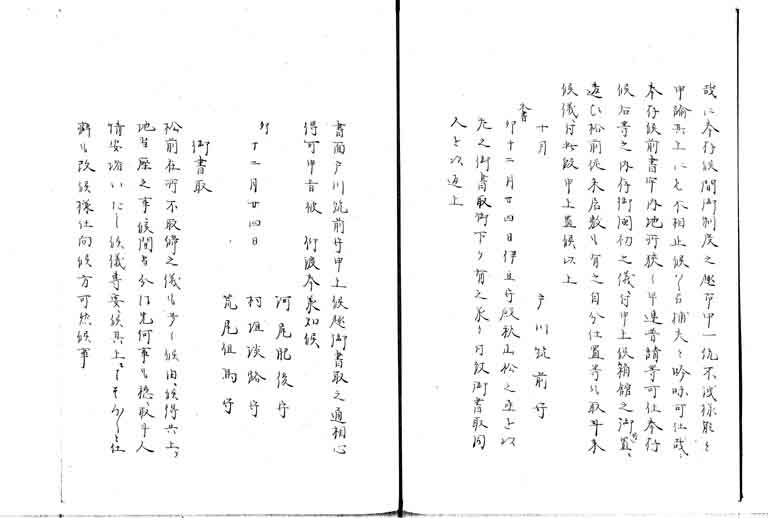 哉に奉存候間御制度之趣市中一統不洩様能々
申論其上にも不相止候ハヽ召捕夫々吟味可仕哉、
奉存候前書市中内地所狭ク早速普請等可仕奉存
候右等之内存御開初之儀ニ付申上候箱館之御置、
追ひ松前従来居数も有之自分仕置等も取斗来
候儀ニ付此段申上置候以上
十月　戸川筑前守
朱書
卯十二月廿四日伊豆守殿秋山松之丞を以
左之御書取御下ケ有之承り付致御書取同
人を以返上
書面戸川筑前守申上候趣御書取之通相心
得可申旨被　仰渡奉承知候
卯
十二月廿四日　河尾肥後守
村垣淡路守
荒尾但馬守
御書取
松前在所不取締之儀も多く候由、候得共上ヶ
地出歴之事候間当分は先何事も穏ニ取斗人
情安堵いたし候儀専要候其上ニもそれ〳〵仕
断も改候様仕向候方可然候事